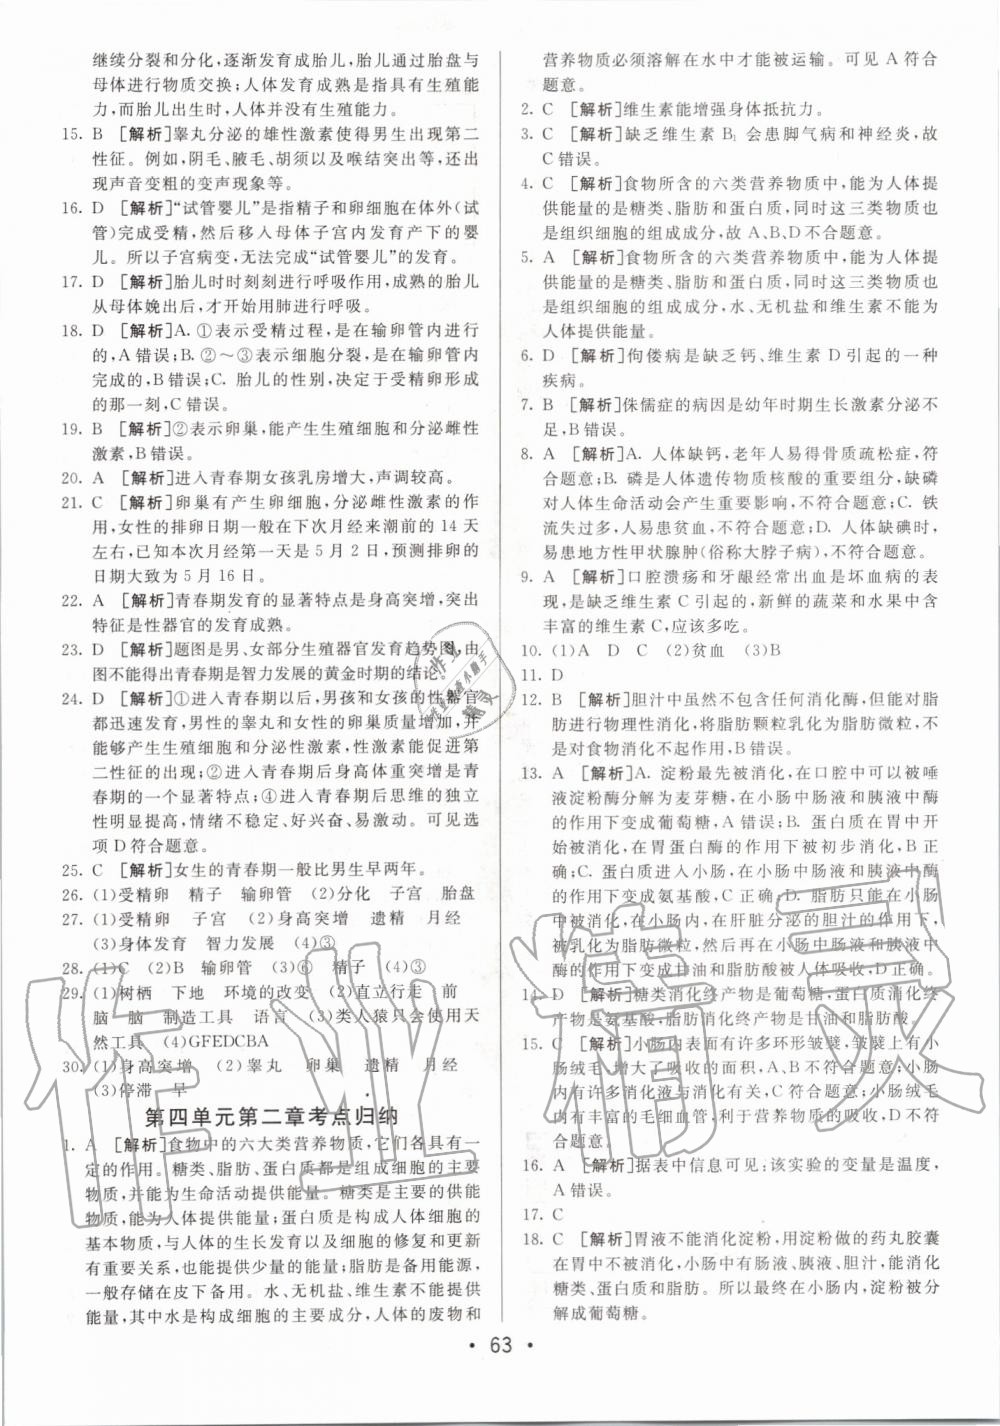 继续分裂和分化,逐渐发育成胎儿,胎儿通过胎盘与
母体进行物质交换;人体发育成熟是指具有生殖能
力,而胎儿出生时,人体并没有生殖能力。
15. B 【解析】睾丸分泌的雄性激素使得男生出现第二
性征。例如,阴毛、腋毛、胡须以及喉结突出等,还出
现声音变粗的变声现象等。
16. D 【解析】“试管婴儿”是指精子和卵细胞在体外(试
管)完成受精,然后进入母体子宫内发育产下的婴
儿。所以子宫病变,无法完成“试管婴儿”的发育。
17. D 【解析】胎儿时时刻刻进行呼吸作用,成熟的胎儿
从母体娩出后,才开始用肺进行呼吸。
18. D 【解析】A. ①表示受精过程,是在输卵管内进行
的,A错误;B. ②～③表示细胞分裂,是在输卵管内
完成的,B错误;C. 胎儿的性别,决定于受精卵形成
的那一刻,C错误。
19. B 【解析】②表示卵巢,能产生生殖细胞和分泌雌性
激素,B错误。
20. A 【解析】进入青春期女孩乳房增大,声调较高。
21. C 【解析】卵巢有产生卵细胞,分泌雌性激素的作
用,女性的排卵日期一般在下次月经来潮前的 14 天
左右,已知本次月经第一天是 5 月 2 日,预测排卵的
日期大致为 5 月 16 日。
22. A 【解析】青春期发育的显著特点是身高突增,突出
特征是性器官的发育成熟。
23. D 【解析】题图是男、女部分生殖器官发育趋势图,由
图不能得出青春期是智力发展的黄金时期的结论。
24. D 【解析】①进入青春期以后,男孩和女孩的性器官
都迅速发育,男性的睾丸和女性的卵巢质量增加,并
能够产生生殖细胞和分泌性激素,性激素能促进第
二性征的出现;②进入青春期后身高体重突增是青
春期的一个显著特点;④进入青春期后思维的独立
性明显提高,情绪不稳定、好兴奋、易激动。可见选
项 D 符合题意。
25. C 【解析】女生的青春期一般比男生早两年。
26. (1)受精卵 精子 输卵管 (2)分化 子宫 胎盘
27. (1)受精卵 子宫 (2)身高突增 遗精 月经
(3)身体发育 智力发展 (4)③
28. (1)C (2)B 输卵管 (3)⑥ 精子 (4)③
29. (1)树栖 下地 环境的改变 (2)直立行走 前
脑 脑 制造工具 语言 (3)类人猿只会使用天
然工具 (4)GFEDCBA
30. (1)身高突增 (2)睾丸 卵巢 遗精 月经
(3)停滞 早
第四单元第二章考点归纳
1. A 【解析】食物中的六大类营养物质,它们各具有一
定的作用。糖类、脂肪、蛋白质都是组成细胞的主要
物质,并能为生命活动提供能量。糖类是主要的供能
物质,能为人体提供能量;蛋白质是构成人体细胞的
基本物质,与人体的生长发育以及细胞的修复和更新
有重要关系,也能提供少量的能量;脂肪是备用能源,
一般存储在皮下备用。水、无机盐、维生素不能提供
能量,其中水是构成细胞的主要成分,人体的废物和
营养物质必须溶解在水中才能被运输。可见 A 符合
题意。
2. C 【解析】维生素能增强身体抵抗力。
3. C 【解析】缺乏维生素 B₁ 会患脚气病和神经炎,故
C 错误。
4. C 【解析】食物所含的六类营养物质中,能为人体提
供能量的是糖类、脂肪和蛋白质,同时这三类物质也
是组织细胞的组成成分,故 A、B、D不合题意。
5. A 【解析】食物所含的六类营养物质中,能为人体提
供能量的是糖类、脂肪和蛋白质,同时这三类物质也
是组织细胞的组成成分,水、无机盐和维生素不能为
人体提供能量。
6. D 【解析】佝偻病是缺乏钙、维生素 D 引起的一种
疾病。
7. B 【解析】侏儒症的病因是幼年时期生长激素分泌不
足,B错误。
8. A 【解析】A. 人体缺钙,老年人易得骨质疏松症,符
合题意;B. 磷是人体遗传物质核酸的重要组分,缺磷
对人体生命活动会产生重要影响,不符合题意;C. 铁
流失过多,人易患贫血,不符合题意;D. 人体缺碘时,
易患地方性甲状腺肿(俗称大脖子病),不符合题意。
9. A 【解析】口腔溃疡和牙龈经常出血是坏血病的表
现,是缺乏维生素 C 引起的,新鲜的蔬菜和水果中含
丰富的维生素 C,应该多吃。
10. (1)A D C (2)贫血 (3)B
11. D
12. B 【解析】胆汁中虽然不包含任何消化酶,但可对脂
肪进行物理性消化,将脂肪颗粒乳化为脂肪微粒,不
是对食物消化不起作用,B错误。
13. A 【解析】A. 淀粉最先被消化,在口腔中可以被唾
液淀粉酶分解为麦芽糖,在小肠中肠液和胰液中酶
的作用下变成葡萄糖,A 错误;B. 蛋白质在胃中开
始被消化,在胃蛋白酶的作用下被初步消化,B 正
确;C. 当蛋白质进入小肠,在小肠中肠液和胰液中酶
的作用下变成氨基酸,C 正确;D. 脂肪只能在小肠
中被消化,进入小肠后,在肝脏分泌的胆汁的作用下,
被乳化为脂肪微粒,然后再在小肠中肠液和胰液中
酶的作用下变成甘油和脂肪酸被人体吸收,D正确。
14. D 【解析】糖类消化终产物是葡萄糖,蛋白质消化终
产物是氨基酸,脂肪消化终产物是甘油和脂肪酸。
15. C 【解析】小肠内表面有许多环形皱襞,皱襞上有小
肠绒毛,增大了吸收的面积,与吸收有关;小肠
内有许多消化液与消化有关,C 符合题意;小肠绒毛
内有丰富的毛细血管,利于营养物质的吸收,D不符
合题意。
16. A 【解析】据表中信息可见:该实验的变量是温度,
A 错误。
17. C
18. D 【解析】胃液不能消化淀粉,用淀粉做的药丸胶囊
在胃中不被消化,小肠中有肠液、胰液、胆汁,能消化
糖类、蛋白质和脂肪。所以最终在小肠内,淀粉被分
解成葡萄糖。
• 63 •
作业精灵